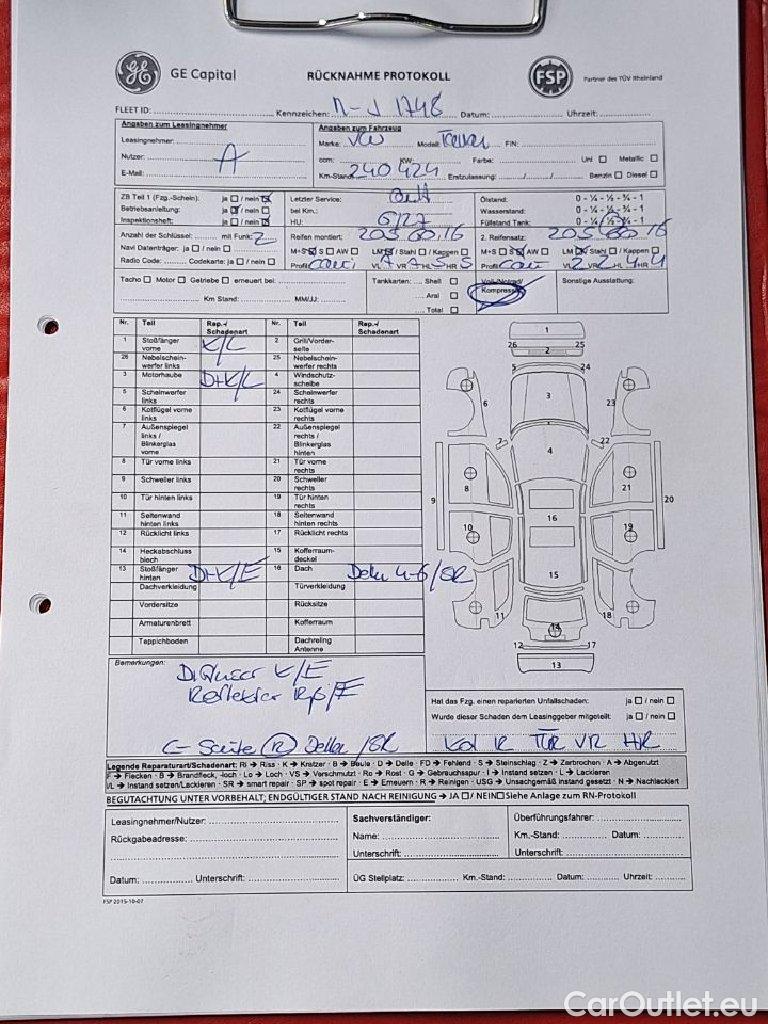 GE Capital RÜCKNAHME PROTOKOLL FSP Partner des TÜV Rheinland
FLEET ID: Kennzeichen: Datum: Uhrzeit:
Angaben zum Leasingnehmer Angaben zum Fahrzeug
Leasingnehmer: Marke: VW Modell: FIN:
Nutzer: A ccm: KW: Farbe: Uni Metallic
E-Mail: Km-Stand: 240424 Erstzulassung: / / Benzin Diesel
ZB Teil 1 (Fzg.-Schein): ja / nein Letzter Service: Ölstand: 0 - ¼ - ½ - ¾ - 1
Betriebsanleitung: ja / nein bei Km.: Wasserstand: 0 - ¼ - ½ - ¾ - 1
Inspektionsheft: ja / nein HU: 6/27 Füllstand Tank: 0 - ¼ - ½ - ¾ - 1
Anzahl der Schlüssel: mit Funk: 2 Reifen montiert: 205 60.16 2. Reifensatz: 205 60 16
Navi Datenträger: ja / nein M+S S AW LM / Stahl / Kappen M+S S AW LM / Stahl / Kappen
Radio Code: Codekarte: ja / nein Profil VL VR HL HR Profil VL VR HL HR
Tacho Motor Getriebe erneuert bei: Tankkarten: Shell Sonstige Ausstattung:
Aral Kompressor
Km Stand: MM/JJ: Total
Nr. Teil Rep.-/ Schadenart Nr. Teil Rep.-/ Schadenart
1 Stoßfänger vorne K/L 2 Grill/Vorderseite
26 Nebelscheinwerfer links 25 Nebelscheinwerfer rechts
3 Motorhaube D+K/L 4 Windschutzscheibe
5 Scheinwerfer links 24 Scheinwerfer rechts
6 Kotflügel vorne links 23 Kotflügel vorne rechts
7 Außenspiegel links / Blinkerglas vorne 22 Außenspiegel rechts / Blinkerglas hinten
8 Tür vorne links 21 Tür vorne rechts
9 Schweller links 20 Schweller rechts
10 Tür hinten links 19 Tür hinten rechts
11 Seitenwand hinten links 18 Seitenwand hinten rechts
12 Rücklicht links 17 Rücklicht rechts
14 Heckabschluss blech 15 Kofferraumdeckel
13 Stoßfänger hinten D+K/E 16 Dach Dellen 4-6/SR
Dachverkleidung Türverkleidung
Vordersitze Rücksitze
Armaturenbrett Kofferraum
Teppichboden Dachreling Antenne
1
26 2 25
5 24
6 3 23
7 4 22
8 21
9 20
10 16 19
15
11 18
14
12 17
13
Bemerkungen:
Diffuser K/E
Reflektor
Seite R Dellen /SR
Hat das Fzg. einen reparierten Unfallschaden: ja / nein
Wurde dieser Schaden dem Leasinggeber mitgeteilt: ja / nein
TÜR VR HR
Legende Reparaturart/Schadenart: Ri → Riss · K → Kratzer · B → Beule · D → Delle · FD → Fehlend · S → Steinschlag · Z → Zerbrochen · A → Abgenutzt
F → Flecken · B → Brandfleck, -loch · Lo → Loch · VS → Verschmutzt · Ro → Rost · G → Gebrauchsspur · I → Instand setzen · L → Lackieren
I/L → Instand setzen/Lackieren · SR → smart repair · SP → spot repair · E → Erneuern · R → Reinigen · USG → Unsachgemäß instand gesetzt · N → Nachlackiert
BEGUTACHTUNG UNTER VORBEHALT; ENDGÜLTIGER STAND NACH REINIGUNG → JA / NEIN Siehe Anlage zum RN-Protokoll
Leasingnehmer/Nutzer: Sachverständiger: Überführungsfahrer:
Rückgabeadresse: Name: Km.-Stand: Datum:
Unterschrift: Unterschrift:
Datum: Unterschrift: ÜG Stellplatz: Km.-Stand: Datum: Uhrzeit:
FSP 2015-10-07
CarOutlet.eu